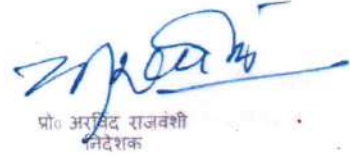 प्रो० अरविंद राजवंशी
निदेशक